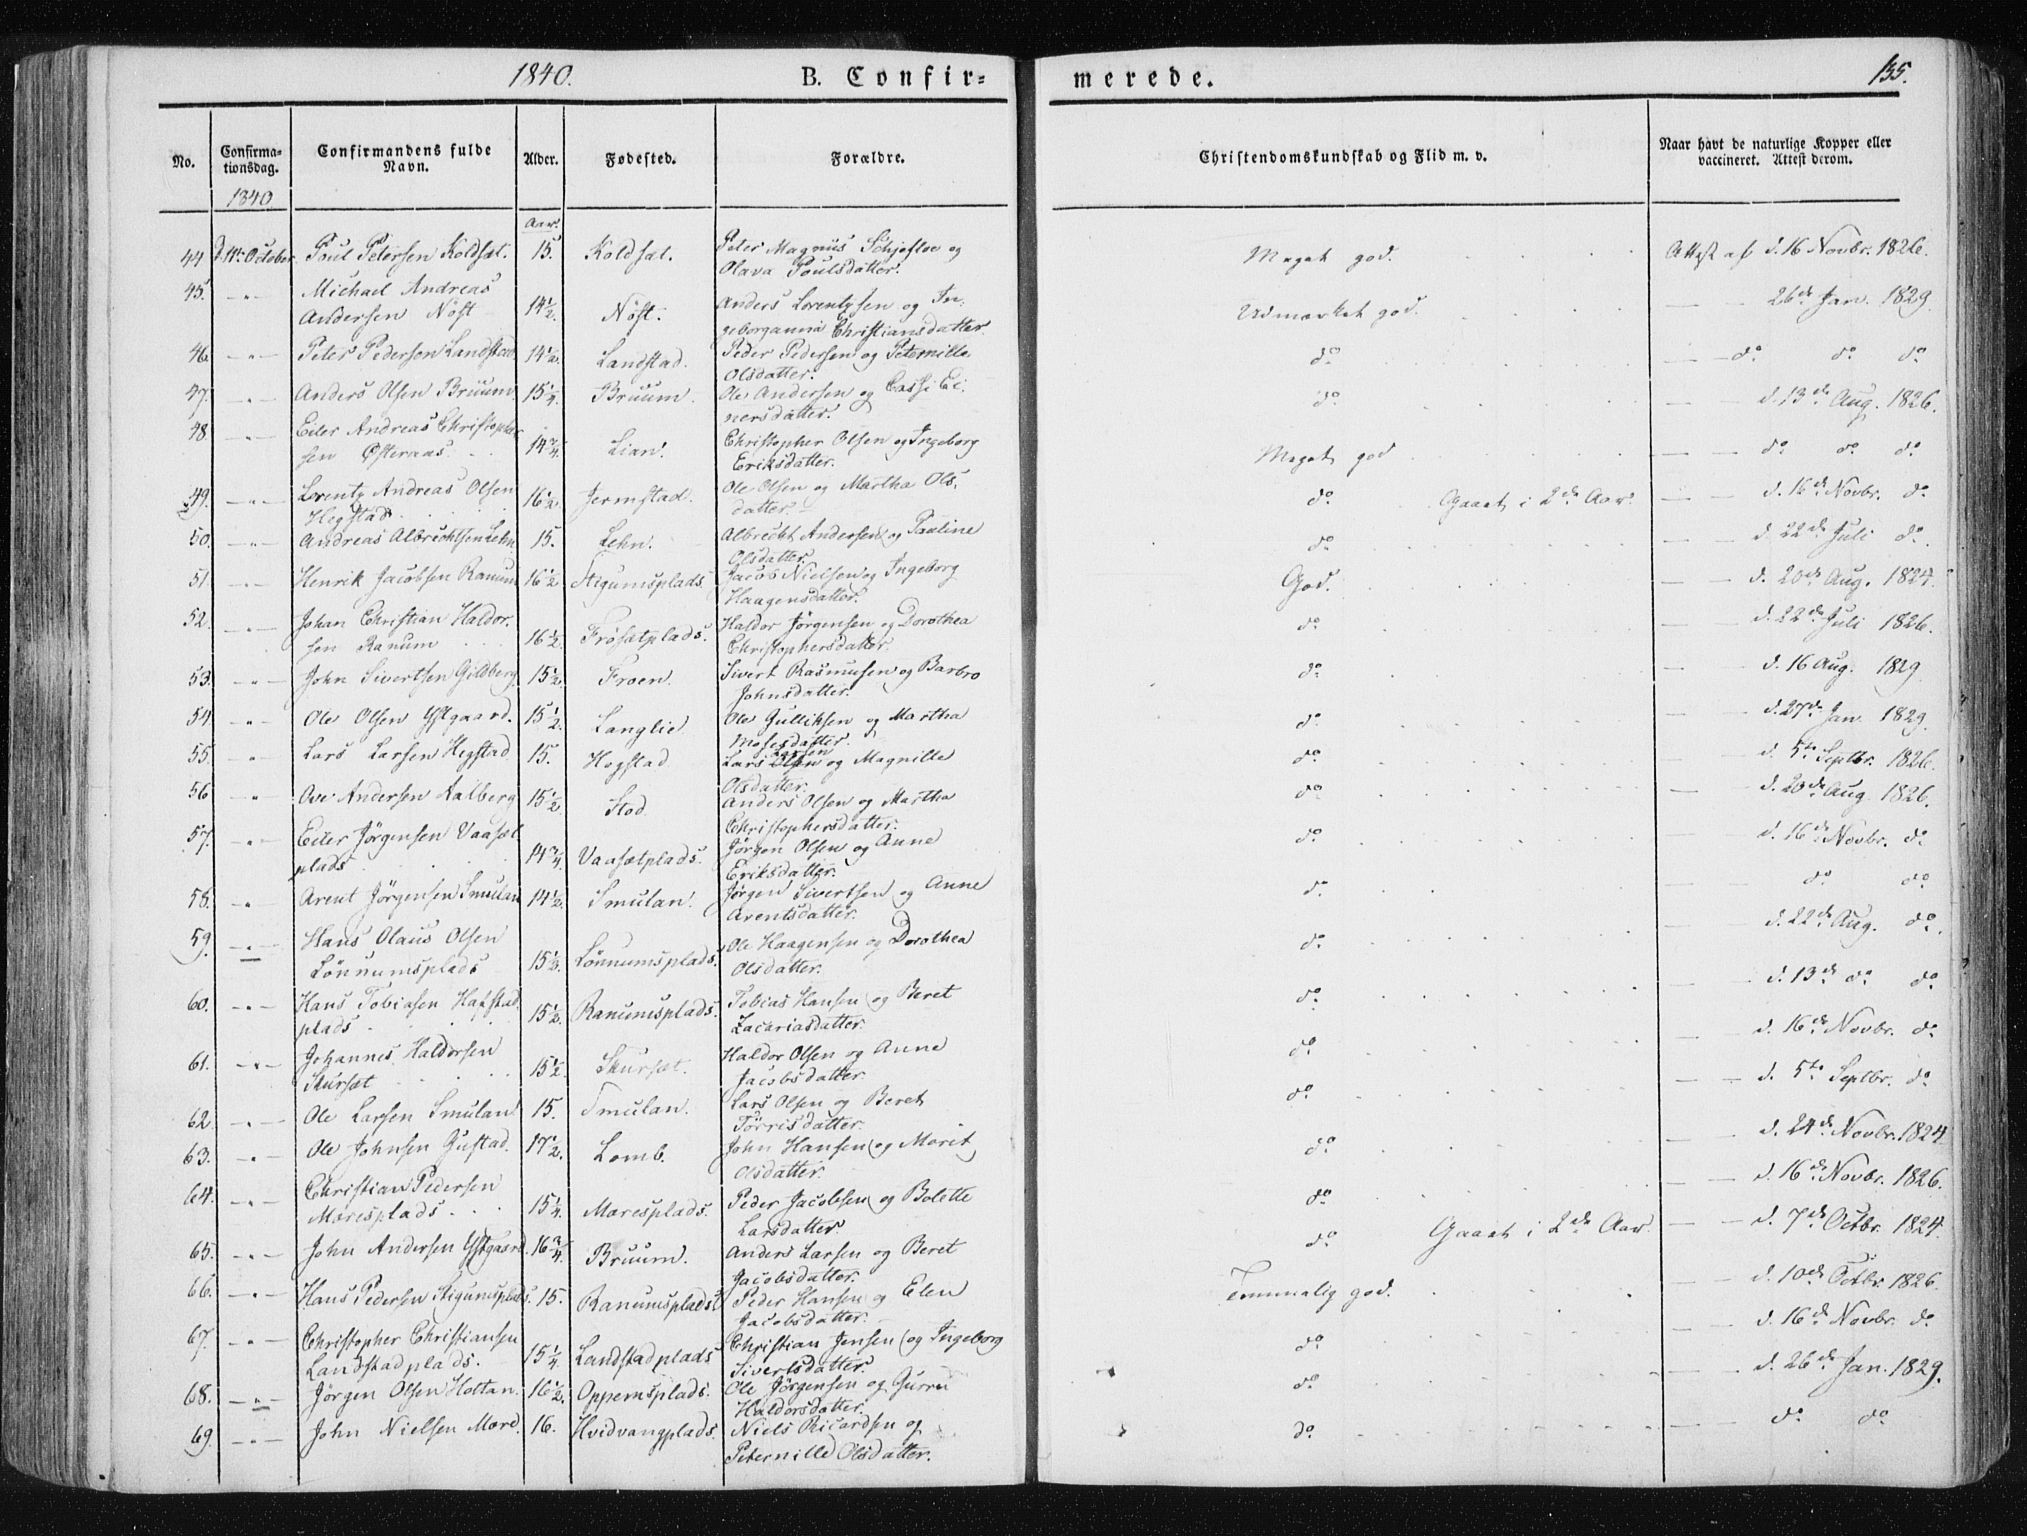 1840. B. Confir= merede. 135.
No. Confirma-tionsdag. Confirmandens fulde Navn. Alder. Fødested. Forældre. Christendomskundskab og Flid m. v. Naar havt de naturlige Kopper eller vaccineret. Attest derom.
1840 Aar.
44 d. 11te October. Poul Petersen Koldsæt. 15. Koldsæt. Peter Magnus Schjefloe og Olava Poulsdatter. Meget god. Attest af d. 16 Novbr. 1826.
45. -"- Michael Andreas Andersen Nöst 14 1/2. Nöst. Anders Lorentzsen og Ingeborganna Christiansdatter. Udmærket god. 26de Jan. 1829.
46. -"- Peter Pedersen Landstad 14 1/2. Landstad. Peder Pedersen og Peternille Olsdatter. do do do do
47. -"- Anders Olsen Bruum. 15 1/4. Bruum. Ole Andersen og Einersdatter. do d. 13de Aug. 1826.
48. -"- Eiler Andreas Christophersen Østeraas. 14 3/4. Lian. Christopher Olsen og Ingeborg Eriksdatter. Meget god do do do
49. -"- Lorentz Andreas Olsen Hegstad. 16 1/2. Jermstad. Ole Olsen og Martha Olsdatter. do Gaaet i 2de Aar. d. 16de Novbr. do
50. -"- Andreas Albrechtsen Lehn 15. Lehn. Albrecht Andersen og Pauline Olsdatter. do d. 22de Juli do.
51. -"- Henrik Jacobsen Ranum 16 1/2. Stigumsplads. Jacob Nielsen og Ingeborg Haagensdatter. God. d. 20de Aug. 1824.
52. -"- Johan Christian Haldorsen Ranum 16 1/2. Frösætplads. Haldor Jørgensen og Dorothea Christophersdatter. do d. 22de Juli 1826.
53. -"- John Sivertsen Gildberg. 15 1/2. Froen. Sivert Rasmusen og Barbro Johnsdatter. do d. 16 Aug. 1829.
54. -"- Ole Olsen Ystgaard. 15 1/2. Langlie. Ole Gulliksen og Martha Mosesdatter. do d. 27de Jan. 1829.
55. " Lars Larsen Hegstad 15. Hegstad Lars Olsen Larsen og Magnille Olsdatter. do d. 5te Septbr. 1826.
56 -"- Ove Andersen Aalberg 15 1/2. Stod. Anders Olsen og Martha Christophersdatter. do d. 20de Aug. 1826.
57. -"- Eiler Jörgensen Vaasætplads 14 3/4. Vaasætplads. Jørgen Olsen og Anne Eriksdatter. do d. 16de Novbr. do
58. -"- Arent Jörgensen Smulan 14 1/2. Smulan. Jørgen Sivertsen og Anne Arentsdatter. do do do
59. -"- Hans Olaus Olsen Lönnumsplads 15 1/3. Lönnumsplads. Ole Haagensen og Dorothea Olsdatter. do d. 22de Aug. do.
60. -"- Hans Tobiasen Hafstadplads. 15 1/2. Ranumsplads. Tobias Hansen og Beret Zacariasdatter. do d. 13de do do
61. -"- Johannes Haldorsen Skursæt 15 1/2. Skursæt. Haldor Olsen og Anne Jacobsdatter. do d. 16de Novbr. do
62. -"- Ole Larsen Smulan 15. Smulan. Lars Olsen og Beret Törrisdatter. do d. 5te Septbr. do
63. -"- Ole Johnsen Gustad. 17 1/2. Lomb. John Hansen og Marit Olsdatter. do d. 24de Novbr. 1824
64. -"- Christian Pedersen Mæresplads. 15 1/4. Mæresplads. Peder Jacobsen og Bolette Larsdatter. do d. 16de Novbr. 1826.
65. -"- John Andersen Ystgaard 16 3/4. Bruum. Anders Larsen og Beret Jacobsdatter. do Gaaet i 2de Aar. d. 7de Octbr. 1824.
66. -"- Hans Pedersen Stigumsplads. 15. Ranumsplads. Peder Hansen og Elen Jacobsdatter. Temmelig god. d. 10de Octbr. 1826.
67. -"- Christopher Christiansen Landstadplads. 15 1/4. Landstadplads Christian Jensen og Ingeborg Sivertsdatter. do d. 16de Novbr. do
68. -"- Jørgen Olsen Holtan. 16 1/2. Oppemsplads. Ole Jørgensen og Gurru Haldorsdatter. do d. 26de Jan. 1829.
69. -"- John Nielsen Mære. 16. Hvidvangplads. Niels Ricardsen og Peternille Olsdatter. do do do